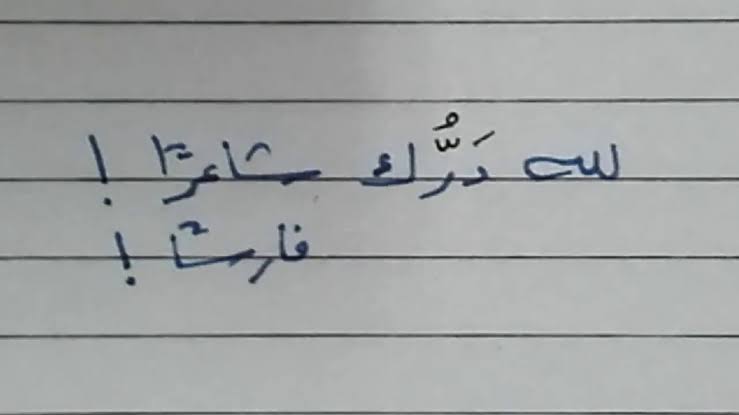 لله دَرُّك شاعرًا !
فارسًا !